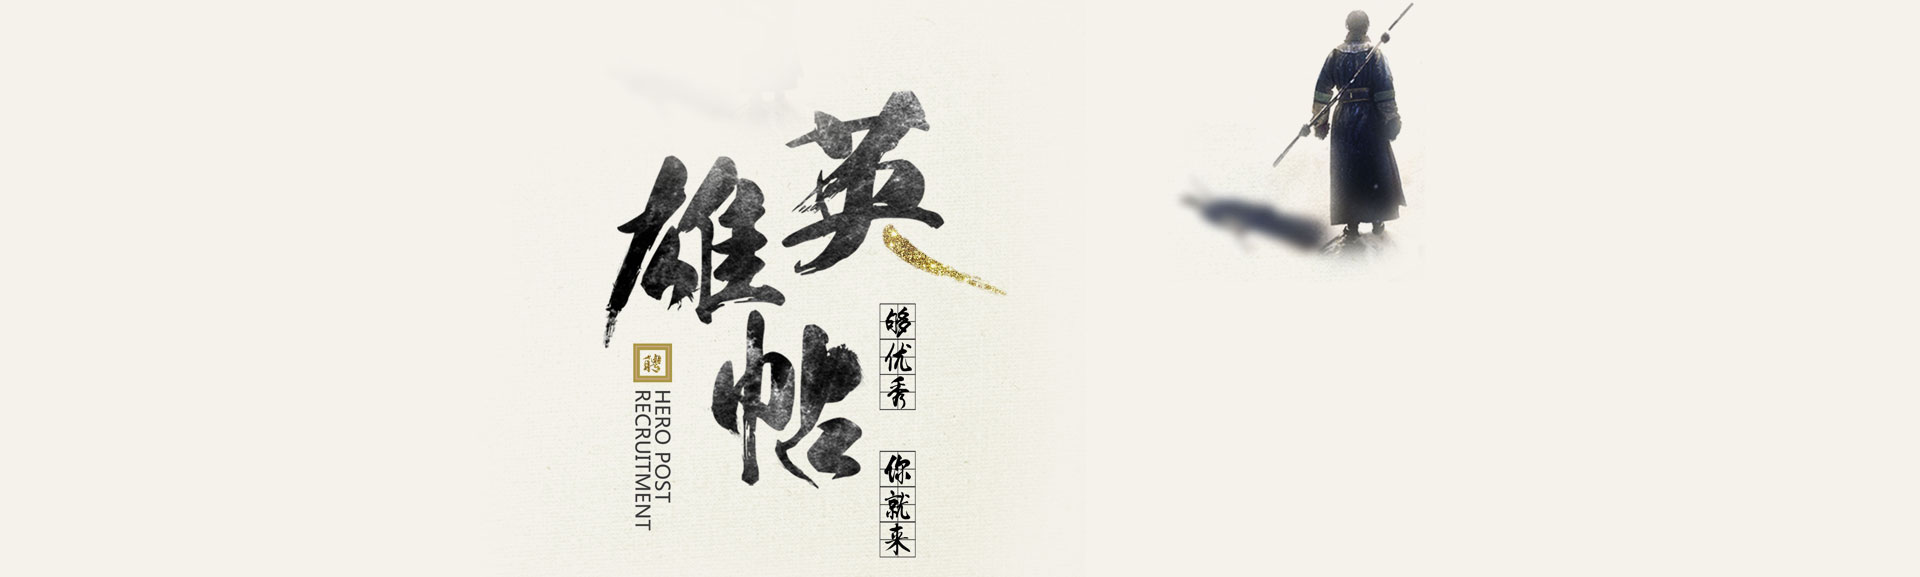 英雄帖
够优秀
你就来
聘
HERO POST
RECRUITMENT